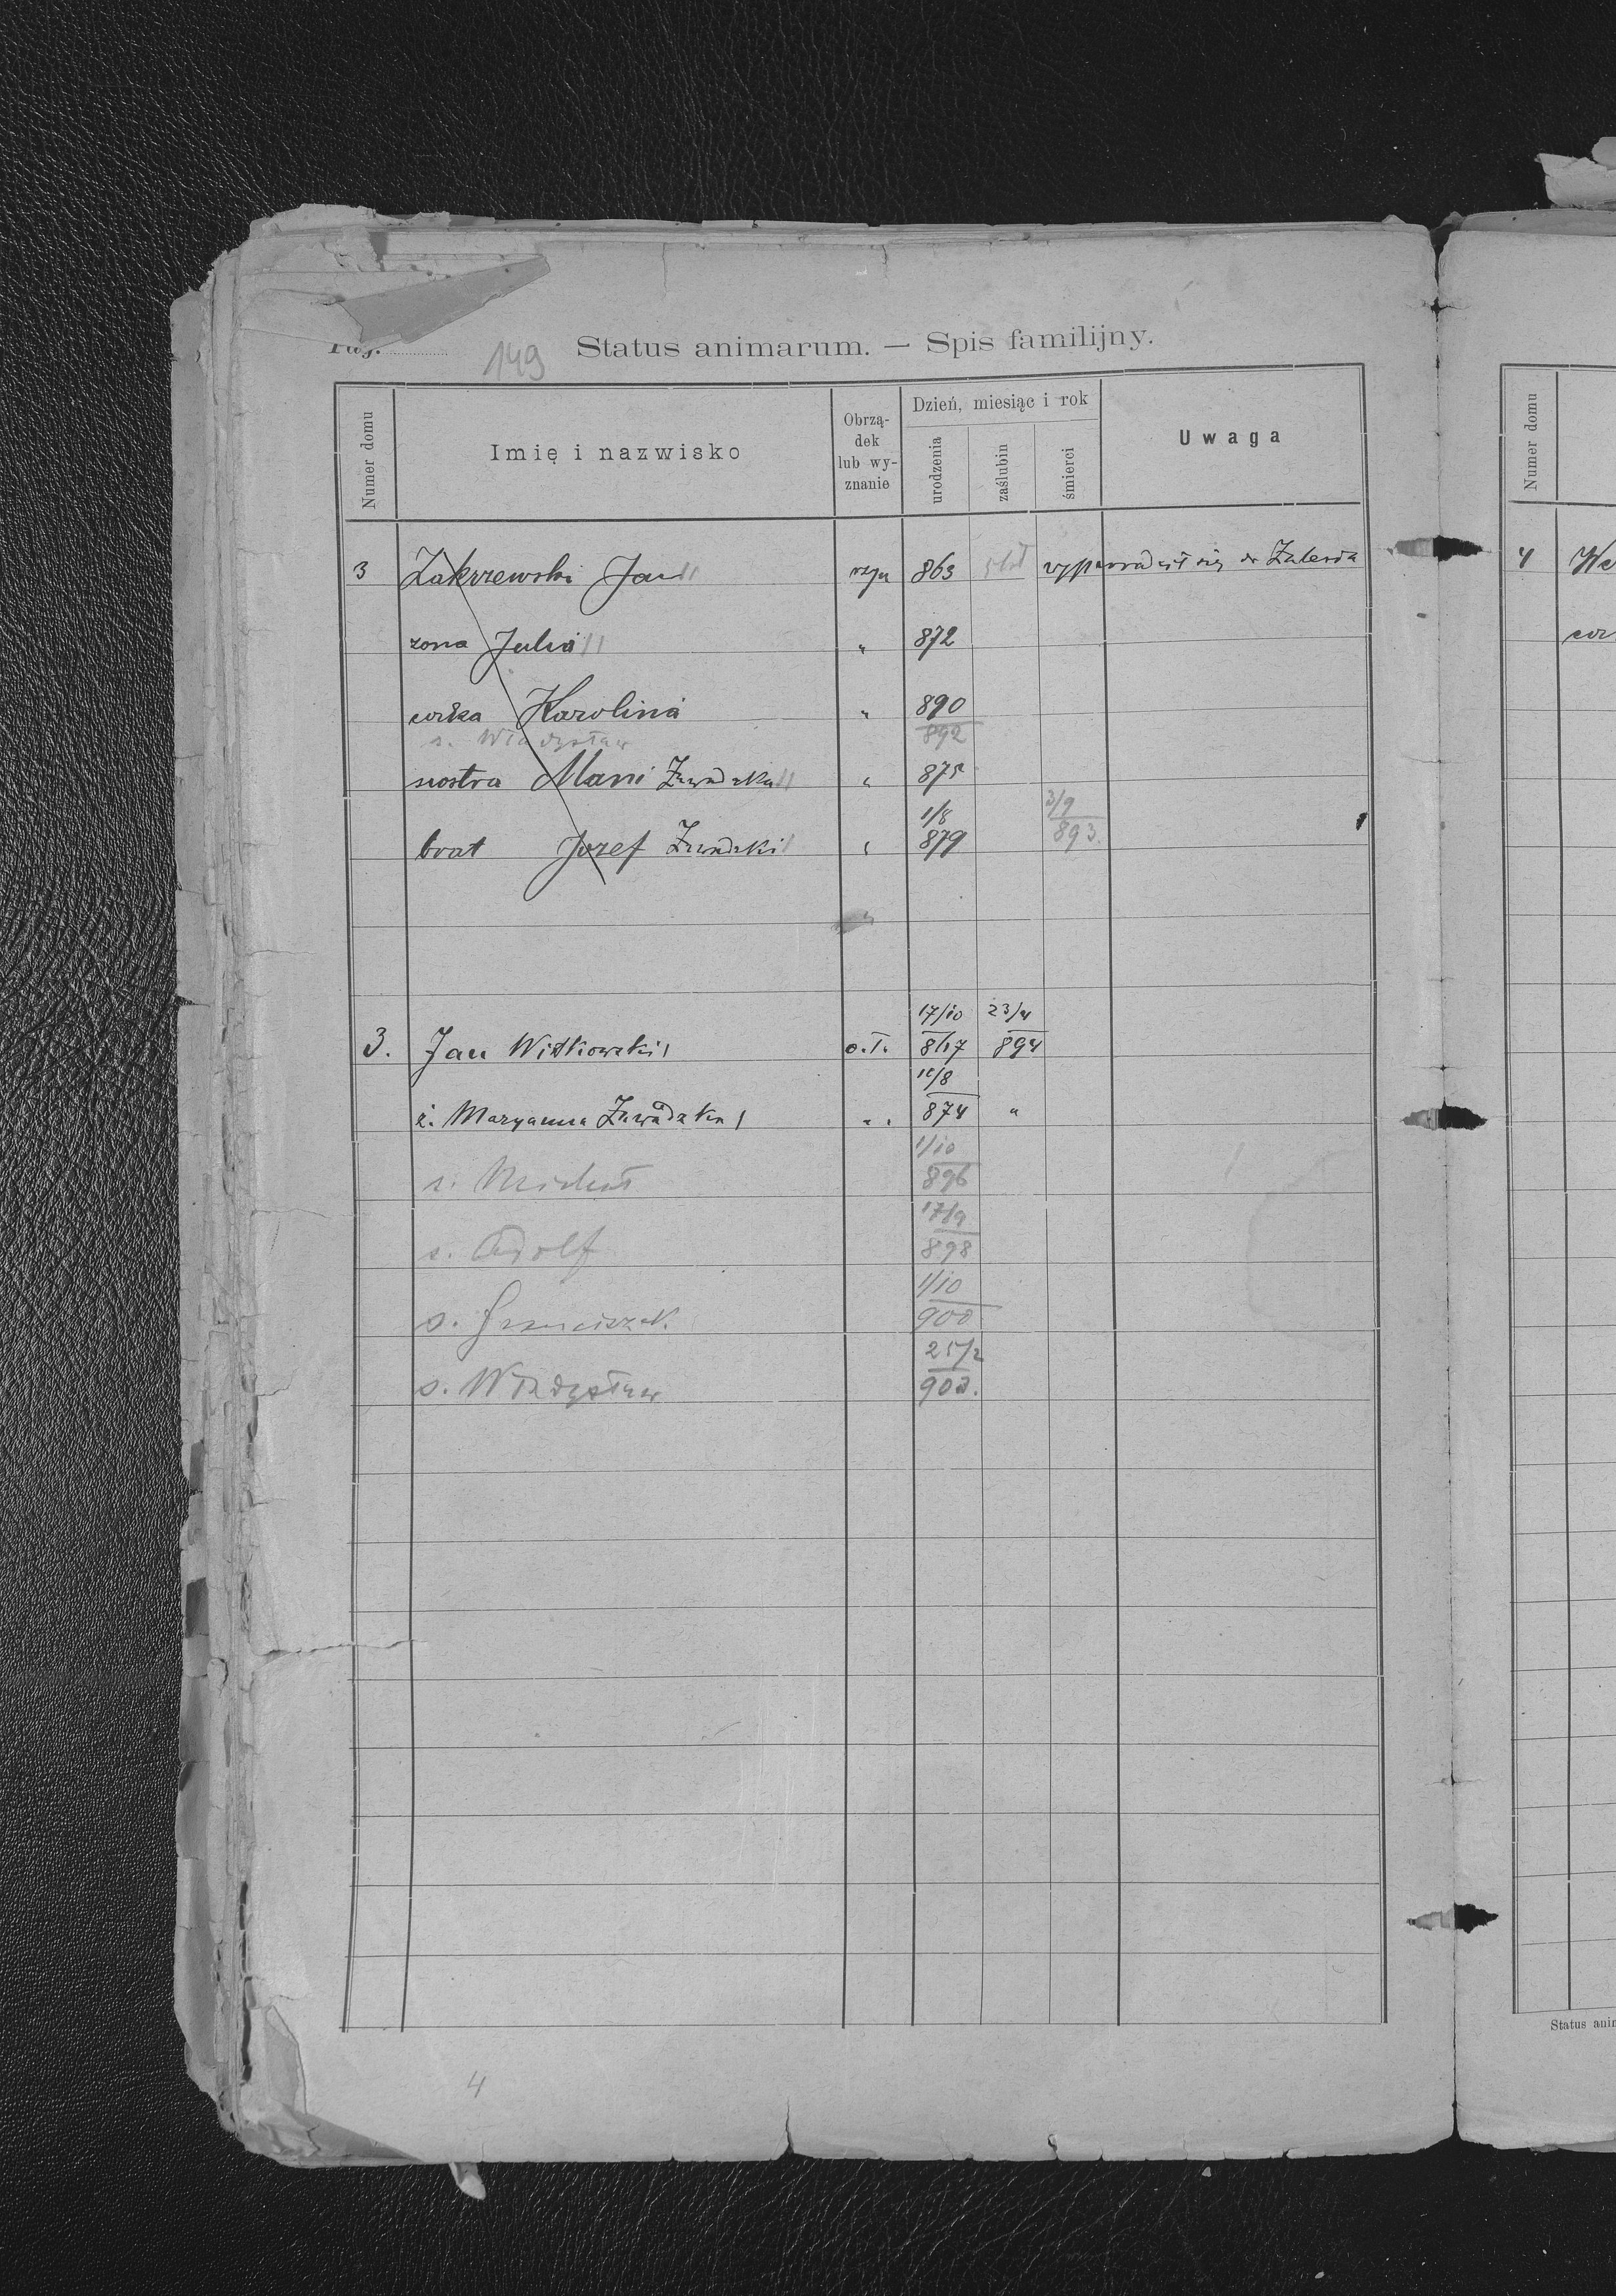 Pag.
149
Status animarum. — Spis familijny.
Numer domu
Imię i nazwisko
Obrzą-
dek
lub wy-
znanie
Dzień, miesiąc i rok
urodzenia
zaślubin
śmierci
Uwaga
3 Zakrzewski Jan rzym 863 wyprowadził się do
żona Julia " 872
corka Karolina " 890
s. Władysław 892
siostra Mari Zawadzka " 875
1/8 3/9
brat Jozef Zawadzki " 879 893.
17/10 23/4
3. Jan Witkowski o.ł. 867 894
8
ż. Maryanna Zawadzka " 874 "
1/10
s. Michał 896
17/9
s. Adolf 898
1/10
s. Franciszek 900
25/2
s. Władysław
4
Numer domu
4 We
cor
Status anim